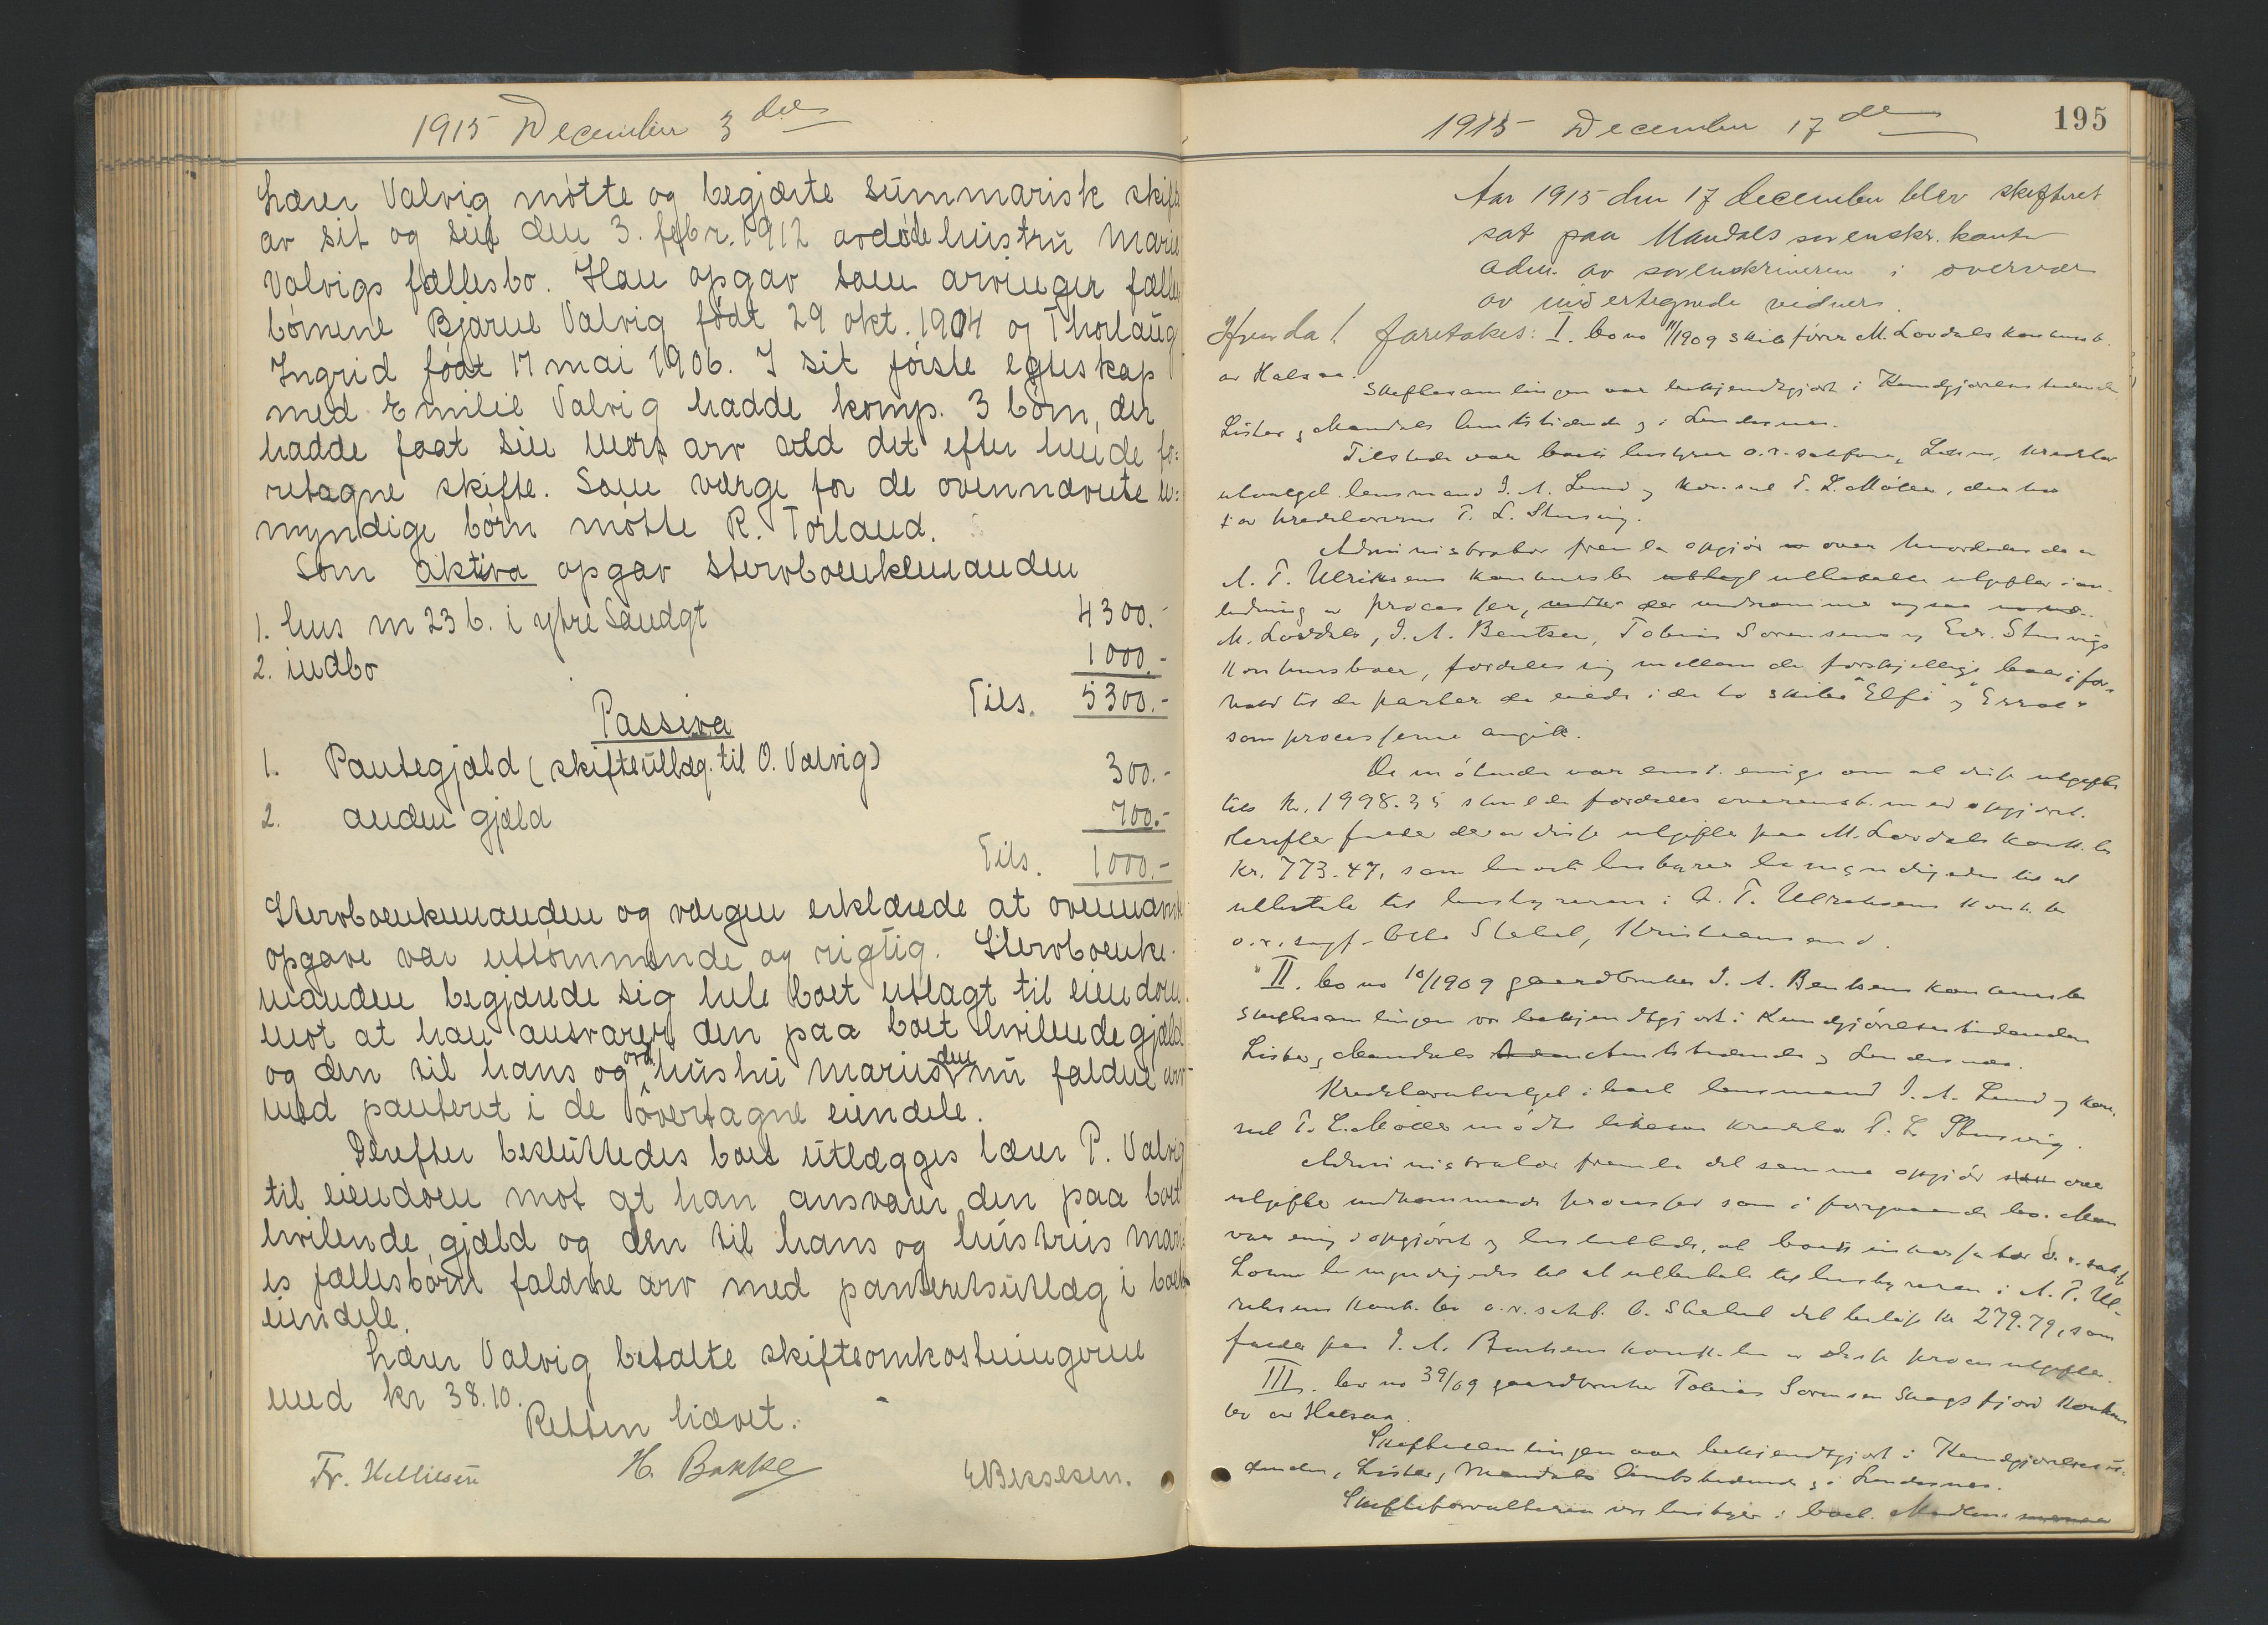 1915 December 3 die
Lærer Valvig møtte og begjærte summarisk skifte
av sit og sin den 3. febr. 1912 avdøde hustru Marie
Valvigs fællesbo. Han opgav som arvinger fælles
børnene Bjarne Valvig født 29 okt. 1904 og Thorlaug
Ingrid født 17 mai 1906. I sit første egteskap
med Emilie Valvig hadde komp. 3 børn, der
hadde faat sin mors arv ved det efter hende fo=
retagne skifte. Som værge for de ovennævnte u=
myndige børn møtte R. Torland.
Som aktiva opgav stervboenkemanden
1. hus m 236. i ytre Sandgt 4300.-
2. indbo 1000.-
Tils. 5300.-
Passiva
1. Pantegjæld (skifteutlæg. til O. Valvig) 300.-
2. anden gjæld 700.-
Tils. 1000.-
Stervboenkemanden og værgen erklærede at ovennævnte
opgave var uttømmende og rigtig. Stervboenke-
manden begjærede sig hele boet utlagt til eiendom
mot at han ansvarer den paa boet hvilende gjæld
og den til hans og avd hustru Maries den nu faldne arv
med panteret i de overtagne eiendele.
Derefter besluttedes boet utlægges lærer P. Valvig
til eiendom mot at han ansvarer den paa boet
hvilende gjæld og den til hans og hustrus Mari-
es fællesbørn faldne arv med panteretsutlæg i boets
eiendele.
Lærer Valvig betalte skifteomkostningerne
med kr 38.10.
Retten hævet.
Fr. Kellilsen H. Bakke E Bessesen.
1915 December 17 de
195
Aar 1915 den 17 december blev skifteret
sat paa Mandals sorenskr. kontor
adm. av sorenskriveren i overvær
av undertegnede vidner.
Hvorda! foretakes: I. bo no 11/1909 skibsfører M. Lovdals konkursb.
av Halsaa.
Skiftesamlingen var bekjendtgjort i Kundgjørelsestidende
Lister og Mandals Amtstidende og i Lindesnes.
Tilstede var boets bestyrer o.r.sakfører Lohne, kreditor
utvalget lensmand I. A. Lund og konsul T. L. Møller, der tar
av kreditorerne T. L. Stusvig.
Administrator fremla opgjør over hvorledes de av
A. T. Ulriksens konkursbo utbetalte utgifter i an-
ledning av processer, der vedkommer
M. Lovdals, I. A. Bentsen, Tobias Sorensens og Edv. Stusvigs
konkursboer, fordeler sig mellem de forskjellige boer i for-
hold til de parter de eiede i de to skibe "Elfi" og "Errol"
som processerne angik.
De møtende var enst. enige om at disse utgifter
tils kr. 1998.35 skulde fordeles overensst. med opgjøret.
Herefter falder der av disse utgifter paa M. Lovdals konk. bo
kr. 773.47, som boets bestyrer bemyndigedes til at
utbetale til bestyreren i A. T. Ulriksens konk. bo
o.r.sagf. Otto Stabel, Kristianssand.
II. bo no 10/1909 gaardbruker I. A. Bentsens konkursbo
Skiftesamlingen var bekjendtgjort i Kundgjørelsestidenden
Lister og Mandals Amtstidende og Lindesnes.
Kreditorutvalget i boet lensmand I. A. Lund og kon-
sul T. L. Møller mødte likesom kreditor T. L. Stusvig.
Administrator fremla det samme opgjør over
utgifter vedkommende processer som i foregaaende bo. Man
var enig i opgjøret og besluttede, at boets inkassator o.r.sakf.
Lohne bemyndigedes til at utbetale til bestyreren i A. T. Ul-
riksens konk. bo o.r.sakf. O. Stabel det beløp kr 279.79, som
falder paa I. A. Bentsens konk. bo av disse procesutgifter.
III. bo no 39/09 gaardbruker Tobias Sorensen Skogsfjord konkurs
bo av Halsaa.
Skiftesamlingen var bekjendtgjort i Kundgjørelsesti-
denden, Lister og Mandals Amtstidende og i Lindesnes.
Skifteforvalteren var bestyrer i boet. Medlem